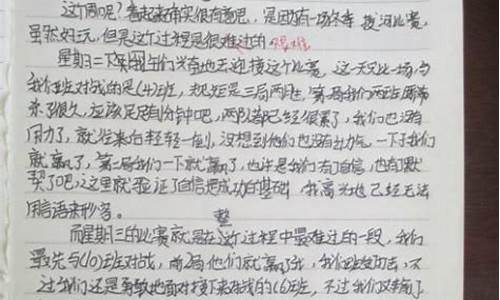 这个周呢?看起来确实很有意思,是因为有一场冬季拔河比赛,
虽然好玩,但是这个过程是很难过的 很难
星期二下午同学们兴奋地去迎接这个比赛,这一天只比一场与
我们班对战的是(4)班,规矩是三局两胜,第一局我们两班
来了很久,应该足足有1分钟吧,两队都已经很累了,我们也没有
用力了,就往来白轻轻一,没想到他们也没有力气,一下子我们
就赢了,第二局我们一下就赢了,也许是我们有了自信,也有默
契了吧,这里就验证了自信把成功的基础,我高兴地已经无法
用言语来形容。
整
而星期三的比赛就是在这个过程中最难过的一段,我们
最先与(10)班对战,前2局他们就赢了我,我们班,不
过我们还是勇敢地面对接下来对战的(6)班,不过我们又输了